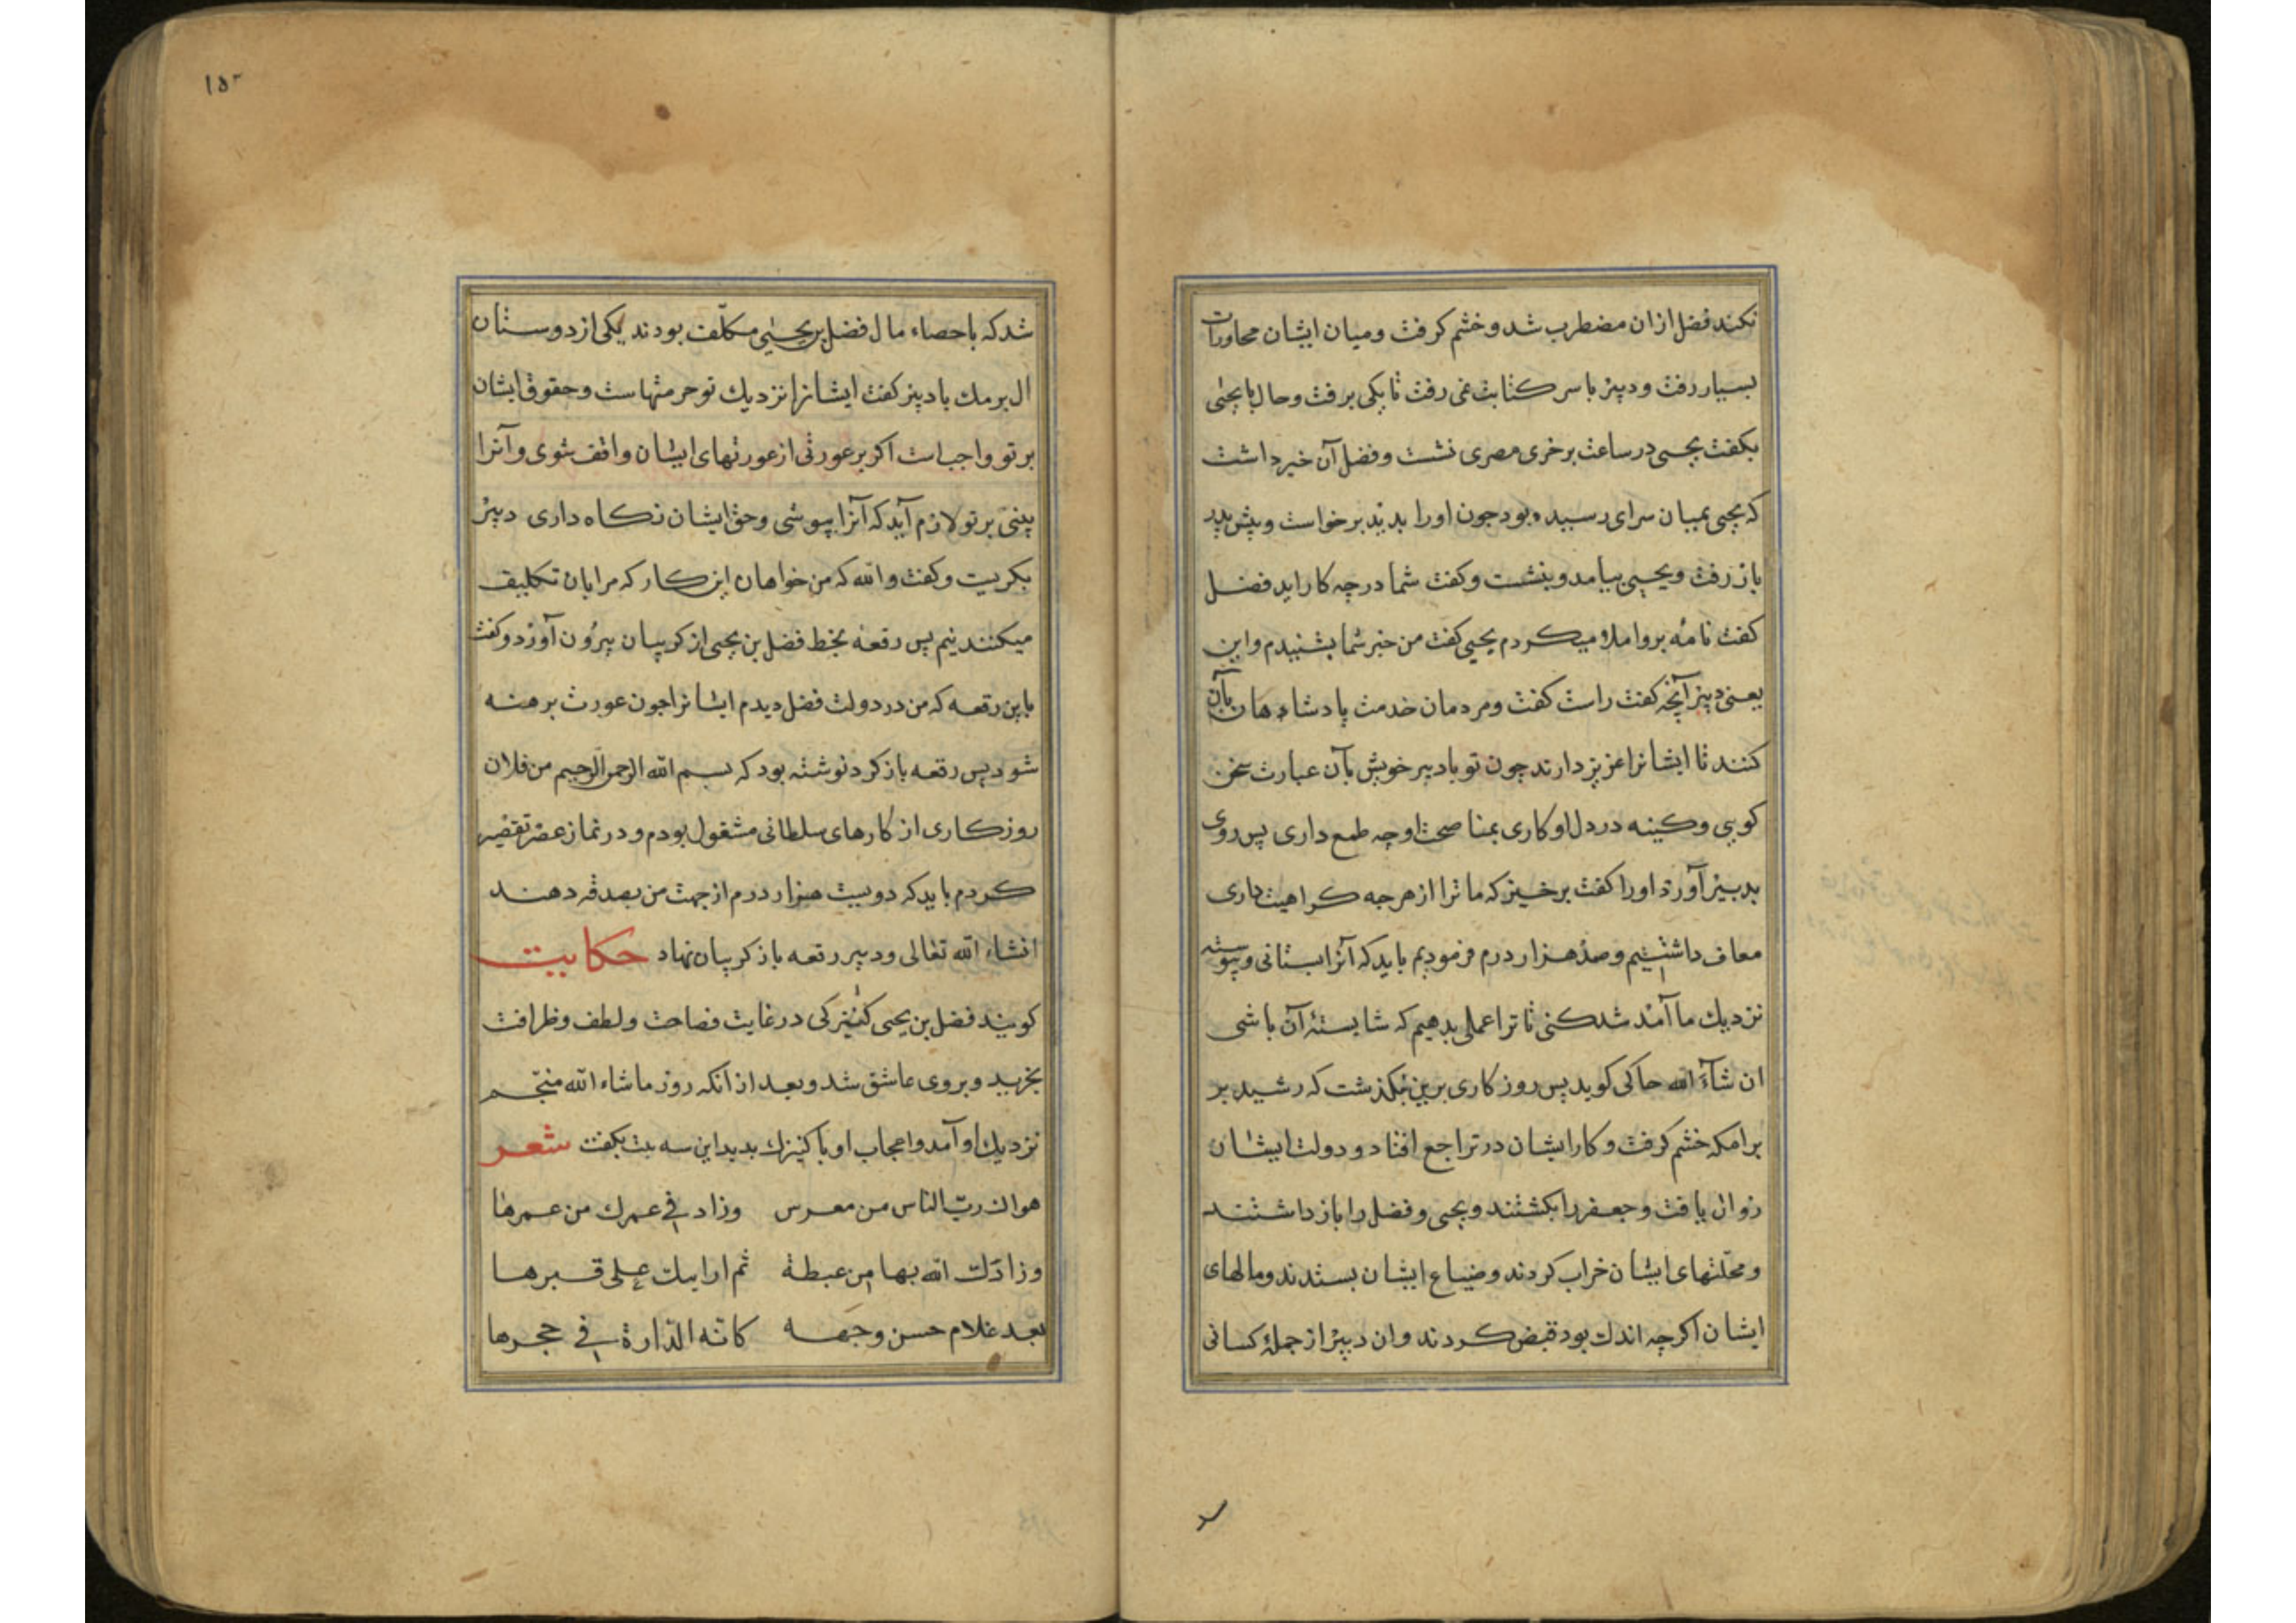 نکنند فضل ازان مضطرب شد و خشم کرفت ومیان ایشان محاورات
بسیار رفت ودبیر با سر کتابت نمی رفت تا یکی برفت وحال با یحیی
بکفت یحیی در ساعت برخری مصری نشست وفضل آن خبر داشت
که یحیی بمیان سرای رسیده بود جون اورا بدید برخواست وپیش پدر
باز رفت ویحیی بیامد وبنشست وکفت شما درچه کار اید فضل
کفت نامه برو املاء میکردم یحیی کفت من خبر شما بشنیدم واین
یعنی دبیر آنچه کفت راست کفت ومردمان خدمت پادشاهان بآن
کنند تا ایشانرا عزیز دارند چون تو با دبیر خویش بآن عبارت سخن
کویی وکینه در دل او کاری بمناصحت او چه طمع داری پس روی
بدبیر آورد اورا کفت برخیز که ما ترا از هرجه کراهیت داری
معاف داشتیم وصد هزار درم فرمودیم باید که آنرا بستانی وپیوسته
نزدیک ما آمد شد کنی تا ترا عملی بدهیم که شایستۀ آن باشی
ان شآء الله حاکی کوید پس روز کاری برین نکذشت که رشید بر
برامکه خشم کرفت وکار ایشان در تراجع افتاد و دولت ایشان
زوال یافت وجعفر را بکشتند ویحیی وفضل را باز داشتند
ومحلتهای ایشان خراب کردند وضیاع ایشان بستدند ومالهای
ایشان اکرچه اندک بود قبض کردند وان دبیر از جملۀ کسانی
١٥٣
شد که باحصاء مال فضل بن یحیی مکلّف بودند یکی از دوستان
ال برمک با دبیر کفت ایشانرا نزدیک تو حرمتهاست وحقوق ایشان
بر تو واجب است اکر بر عورتی از عورتهای ایشان واقف شوی وآنرا
بینی بر تو لازم آید که آنرا بپوشی وحق ایشان نکاه داری دبیر
بکریست وکفت والله که من خواهان این کار که مرا بان تکلیف
میکنند نیم پس رقعه بخط فضل بن یحیی از کریبان بیرون آورد وکفت
باین رقعه که من در دولت فضل دیدم ایشانرا جون عورت برهنه
شود پس رقعه باز کرد نوشته بود که بسم الله الرحمن الرحیم من فلان
روز کاری از کارهای سلطانی مشغول بودم و در نماز عصر تقصیر
کردم باید که دویست هزار درم از جهت من بصدقه دهند
انشاء الله تعالی ودبیر رقعه باز کریبان نهاد حکایت
کویند فضل بن یحیی کنیزکی در غایت فصاحت ولطف وظرافت
بخرید وبروی عاشق شد وبعد از انکه روز ماشاء الله منجّم
نزدیک او آمد واعجاب او با کنیزک بدید این سه بیت بکفت شعر
هواک ربّ الناس من معرس وزاد فی عمرک من عمرها
وزادک الله بها من غبطة ثم اراییک علی قبرها
بعد غلام حسن وجهه کانه الدارة فی حجرها